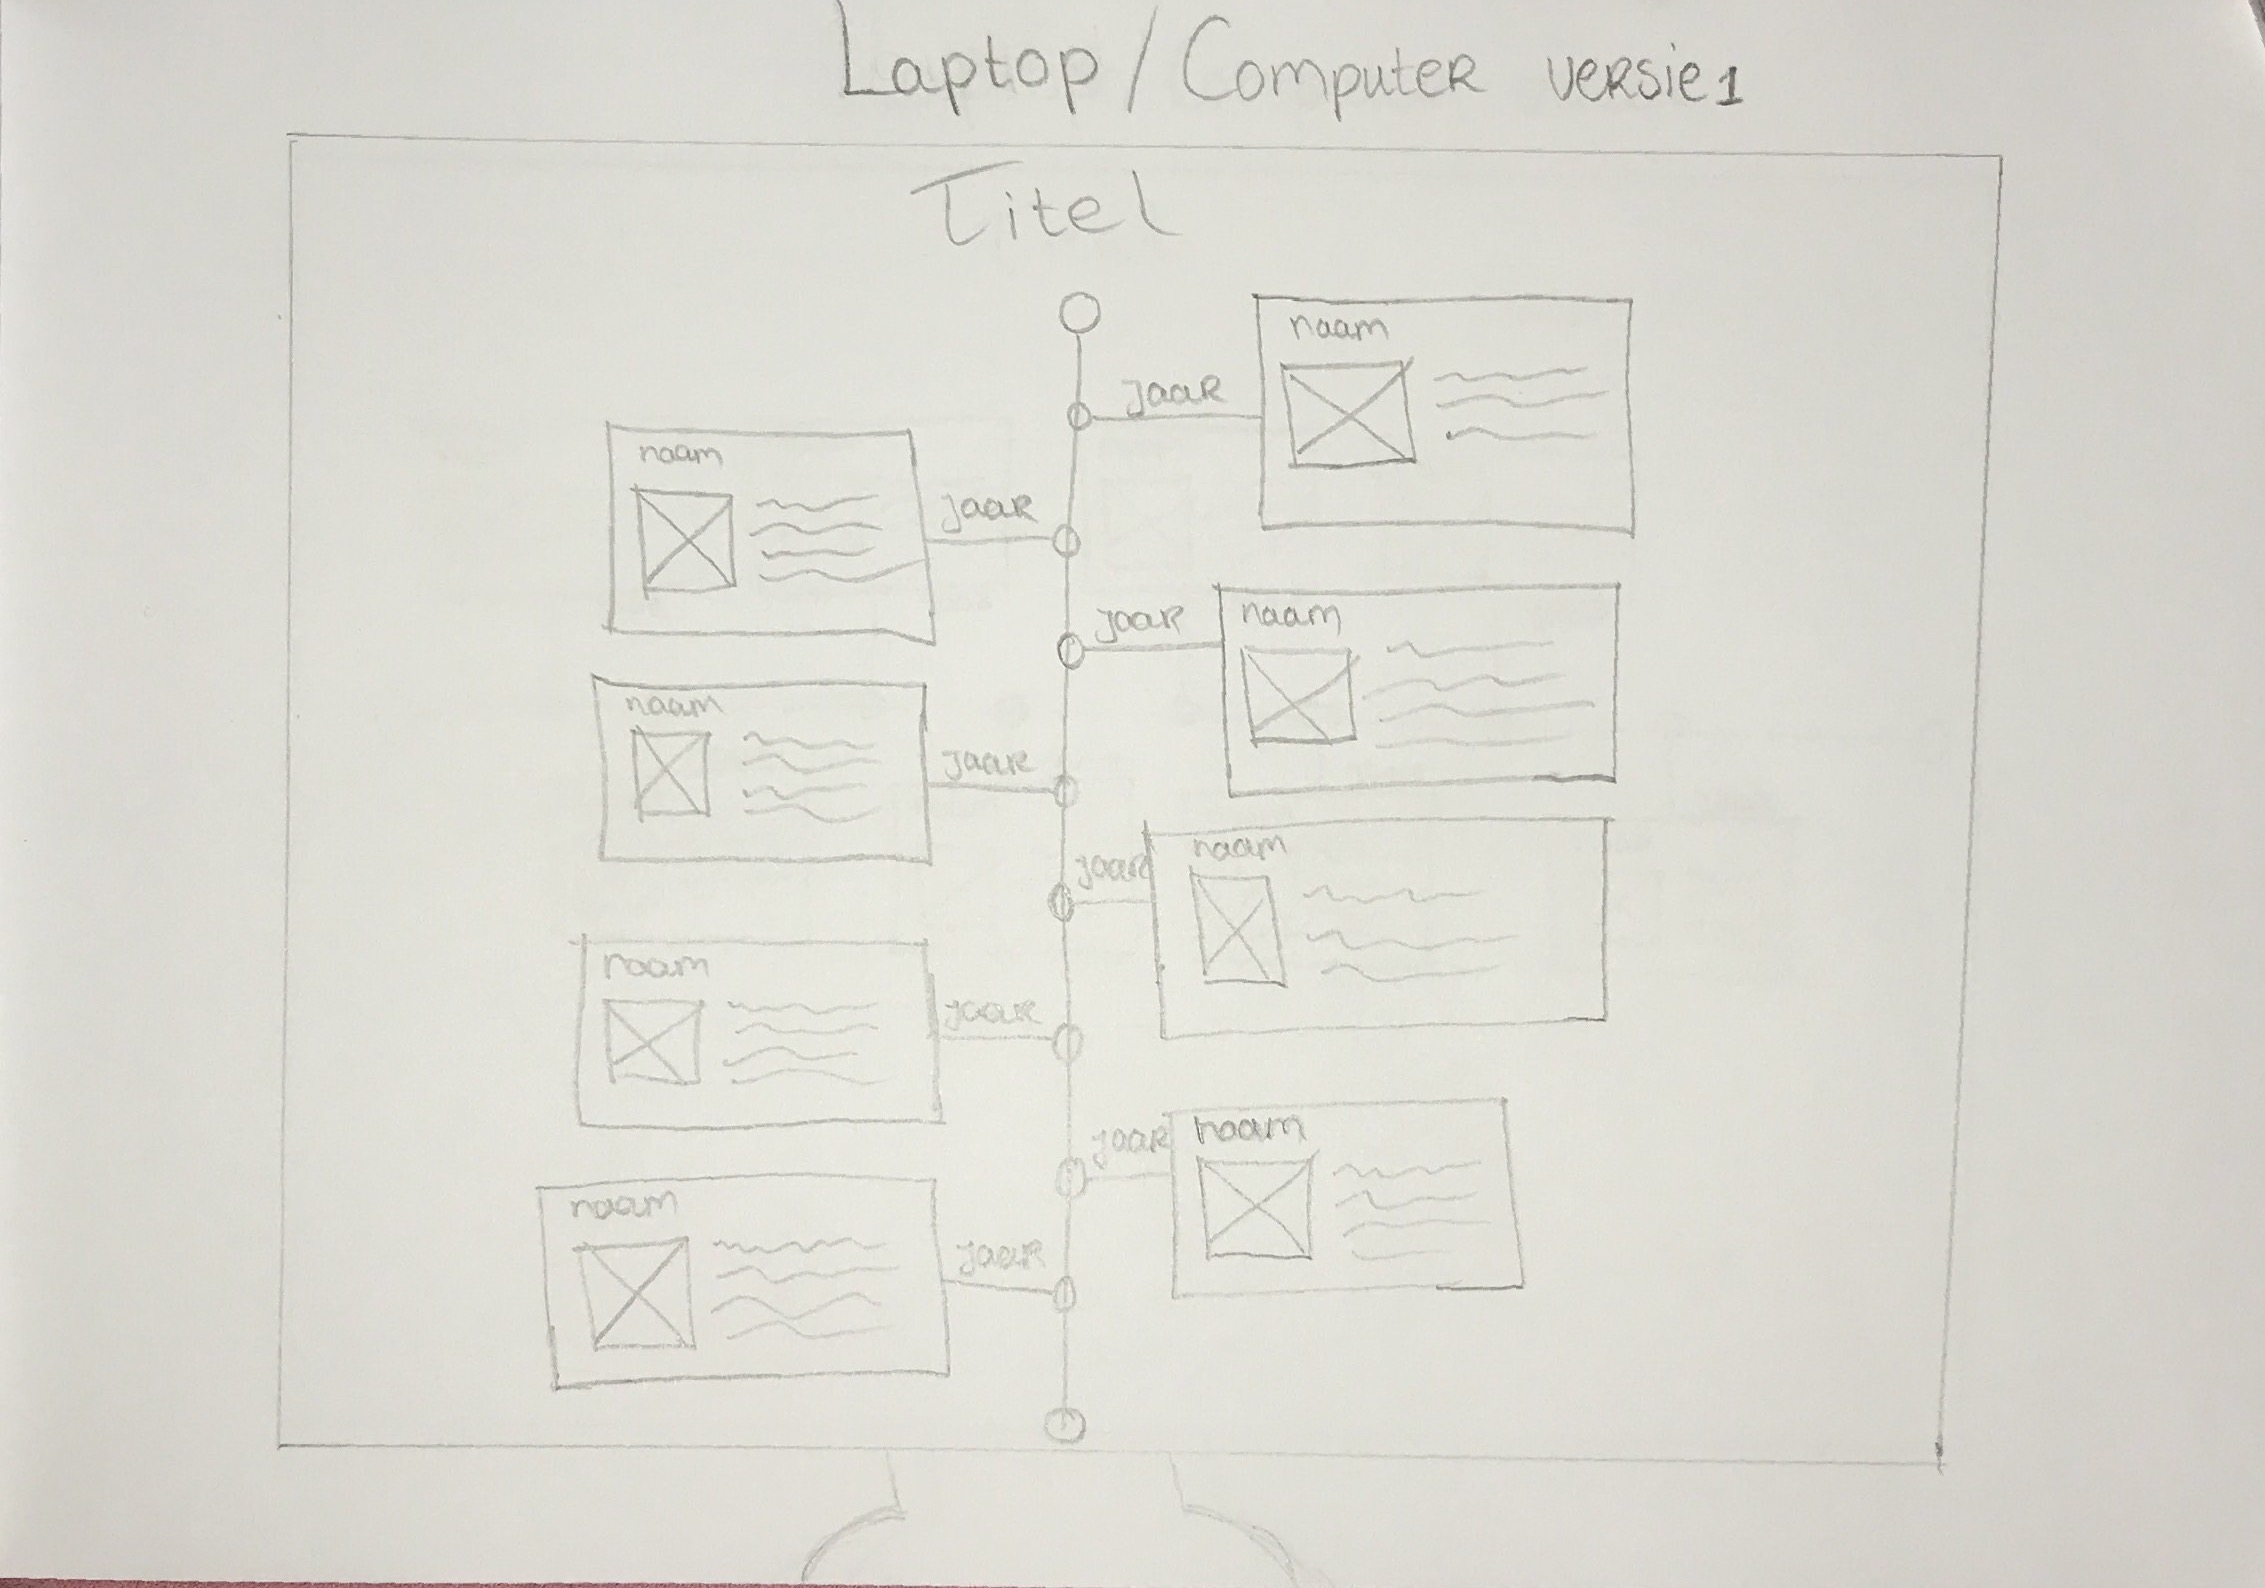 Laptop / Computer versie 1
Titel
naam
jaar
naam
jaar
jaar
naam
naam
jaar
jaar
naam
naam
jaar
jaar
naam
naam
jaar